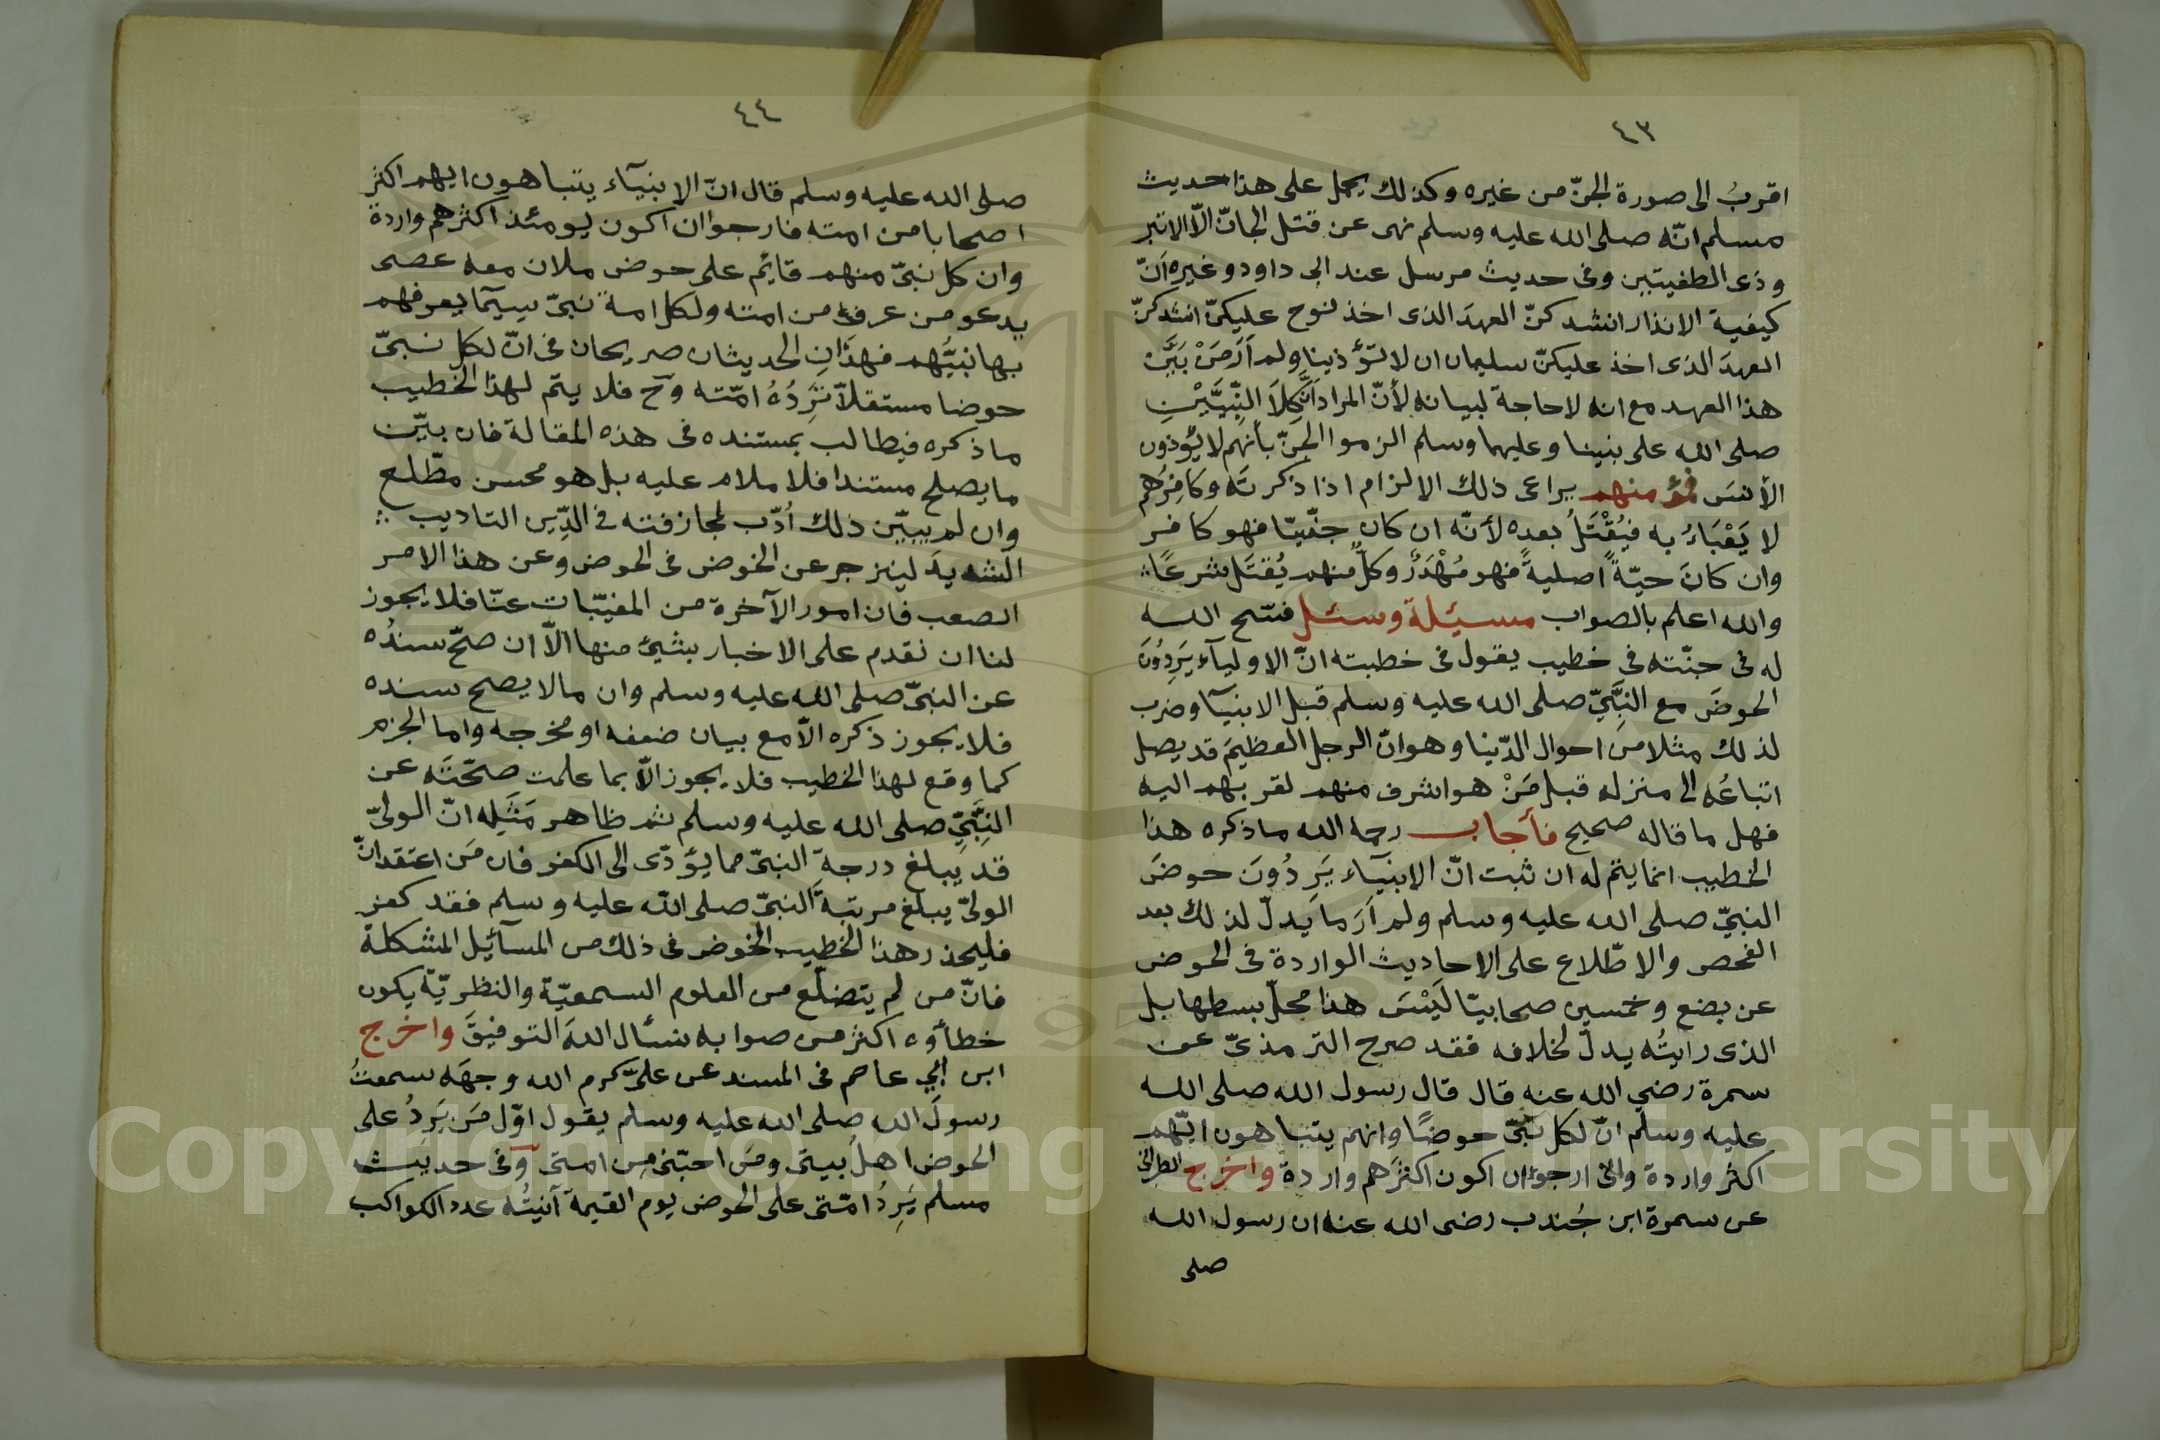 ٤٣
اقربُ الى صورة الجنّ من غيره وكذلك يحمل على هذا حديث
مسلم انّه صلى الله عليه وسلم نهى عن قتل الجانّ الّا الابتر
وذى الطفيتين وفى حديث مرسل عند ابى داود وغيره اَنّ
كيفية الانذار انشدكنّ العهدَ الذى اخذ نوح عليكنّ انشدكنّ
العهدَ الذى اخذ عليكنّ سليمان ان لا تؤذينا ولم اَرَ مَنْ بَيَّنَ
هذا العهد مع انه لا حاجة لبيانه لأنّ المراد اَنَّ كِلَا النَّبِيَّيْنِ
صلى الله على نبينا وعليهما وسلم الزموا الجنّ بأنهم لا يؤذون
الأنسَ فمؤمنهم يراعى ذلك الالزام اذا ذكر تَه وكافِرُهم
لا يَعْبَاءُ به فيُقْتَلُ بعده لأنّه ان كان جنّيّا فهو كافر
وان كانَ حيّةً اصليةً فهو مُهْدَرٌ وكلٌّ منهم يُقتَل شرعًا ؞
والله اعلم بالصواب مسيئلة وسئل فسّح الله
له فى جنّته فى خطيب يقول فى خطبته انّ الاوليآء يَرِدُونَ
الحوضَ مع النَّبيّ صلى الله عليه وسلم قبل الانبيآ وضرب
لذلك مثلا من احوال الدّنيا وهو انّ الرجل العظيمَ قد يصل
اتباعُه الى منزله قبل مَنْ هو اشرف منهم لقربهم اليه
فهل ما قاله صحيح فأجاب رحمه الله ما ذكره هذا
الخطيب انما يتم له ان ثبت انّ الانبيآء يَرِدُونَ حوضَ
النبيّ صلى الله عليه وسلم ولم اَرَ ما يَدلّ لذلك بعد
الفحص والاطّلاع على الاحاديث الواردة فى الحوض
عن بضع وخمسين صحابيّا لَيْسَ هذا محلّ بسطها بل
الذى رايتُه يدلّ لخلافه فقد صرح الترمذىّ عن
سمرة رضي الله عنه قال قال رسول الله صلى الله
عليه وسلم انّ لكل نبىّ حوضًا وانهم يتباهون ايّهم
اكثر واردة وانى ارجو ان اكون اكثرَهم واردة واخرج الطبرانى
عن سمرة ابن جُندب رضى الله عنه ان رسول الله
صلى
٤٤
صلى الله عليه وسلم قال انّ الانبيآء يتباهون ايهم اكثر
اصحابا من امته فارجو ان اكون يومئذ اكثرهم واردة
وان كل نبىّ منهم قائم على حوض ملان معه عصى
يدعو من عرف من امته ولكل امة نبىّ سيمآ يعرفهم
بها نبيُّهم فهذَانِ الحديثان صريحان فى انّ لكل نبىّ
حوضا مستقلّا تَرِدُهُ امّته وح فلا يتم لهذا الخطيب
ما ذكره فيطالب بمستنده فى هذه المقالة فان بيّن
ما يصلح مستندا فلا ملام عليه بل هو محسن مطّلع
وان لم يبيّن ذلك اُدّب لمجازفته فى الدِّين التاديب ؞
الشديدَ لينزجر عن الخوض فى الحوض وعن هذا الامر
الصعب فان امور الآخرة من المغيّبات عنّا فلا يجوز
لنا ان نقدم على الاخبار بشيئ منها الّا ان صحّ سندُه
عن النبىّ صلى الله عليه وسلم وان ما لا يصح سنده
فلا يجوز ذكره الّا مع بيان ضعفه او مخرجه واما الجزم
كما وقع لهذا الخطيب فلا يجوز الّا بما علمت صحّتَه عن
النَّبِيّ صلى الله عليه وسلم ثم ظاهر مَثَلِه انّ الولىّ
قد يبلغ درجة النبىّ مما يؤدّى الى الكفر فان مَن اعتقد انّ
الولىّ يبلغ مرتبةَ النبىّ صلى الله عليه وسلم فقد كفر
فليحذر هذا الخطيب الخوض فى ذلك من المسآئل المشكلة
فانّ من لم يتضلّع من العلوم السمعيّة والنظريّة يكون
خطأؤه اكثر من صوابه نسأل اللهَ التوفيقَ واخرج
ابن ابي عاصم فى المسند عن علىّ كرم الله وجهَه سمعتُ
رسولَ الله صلى الله عليه وسلم يقول اوّل مَن يَرِدُ على
الحوض اهلُ بيتى ومن احبّنى مِن امتى وفى حديث
مسلم يَرِدُ امّتى على الحوض يوم القيمة آنيتُه عدد الكواكب
Copyright © King Saud University